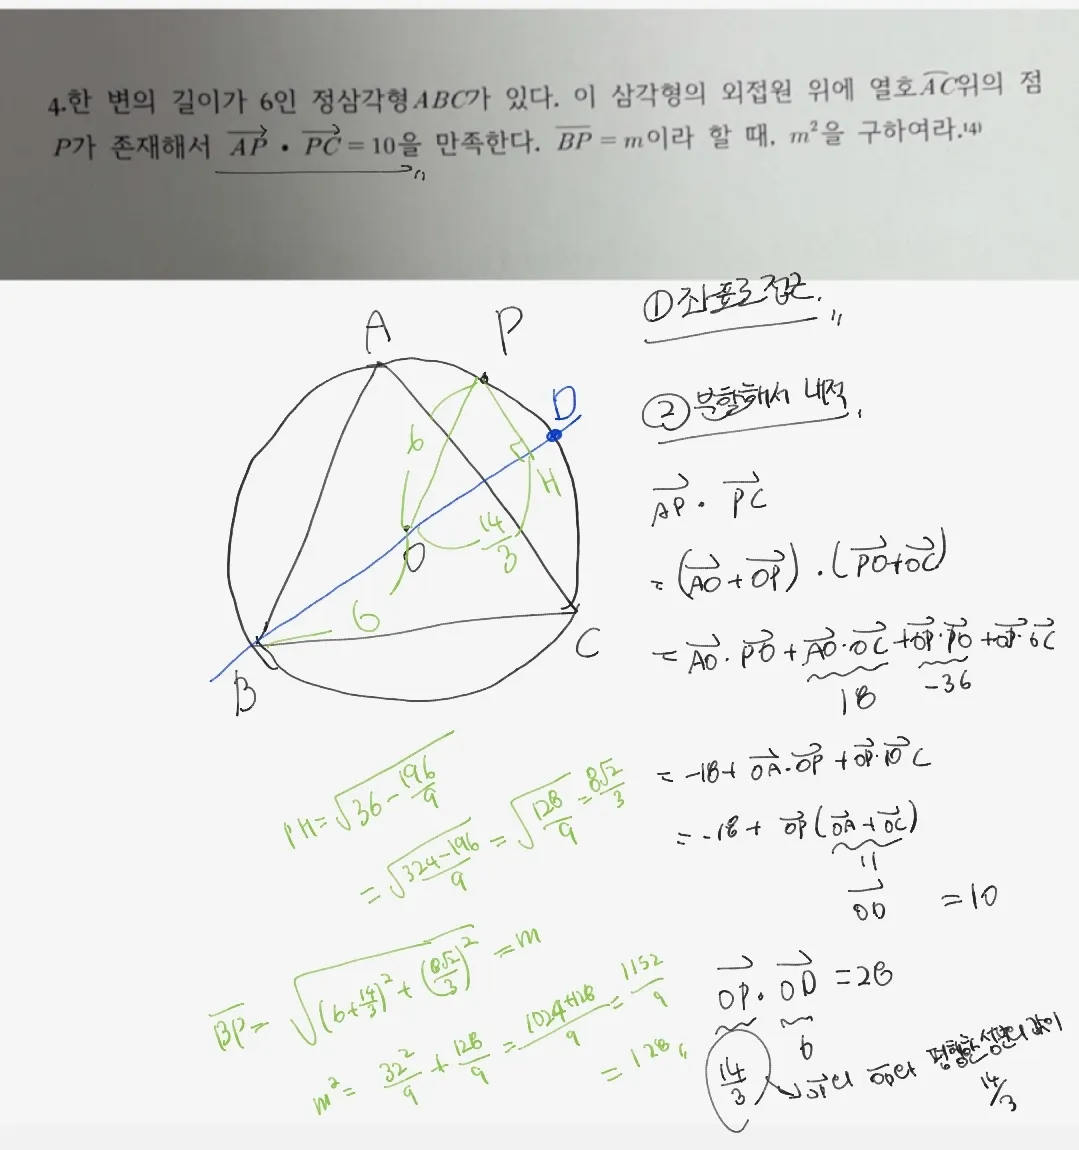 4.한 변의 길이가 6인 정삼각형 ABC가 있다. 이 삼각형의 외접원 위에 열호 AC위의 점
P가 존재해서 AP • PC = 10을 만족한다. BP = m이라 할 때, m²을 구하여라.14)
① 좌표로 접근.
② 분할해서 내적
A
P
D
6
H
14/3
O
6
B
C
AP · PC
= (AO + OP) · (PO + OC)
= AO · PO + AO · OC + OP · PO + OP · OC
18
-36
= -18 + OA · OP + OP · OC
= -18 + OP (OA + OC)
11
OD = 10
OP · OD = 28
14/3
6
평행한 성분의 값이
14/3
PH = √36 - 196/9
= √324-196/9 = √128/9 = 8√2/3
BP = √(6+14/3)² + (8√2/3)² = m
m² = 32²/9 + 128/9 = 1024+128/9 = 1152/9
= 128